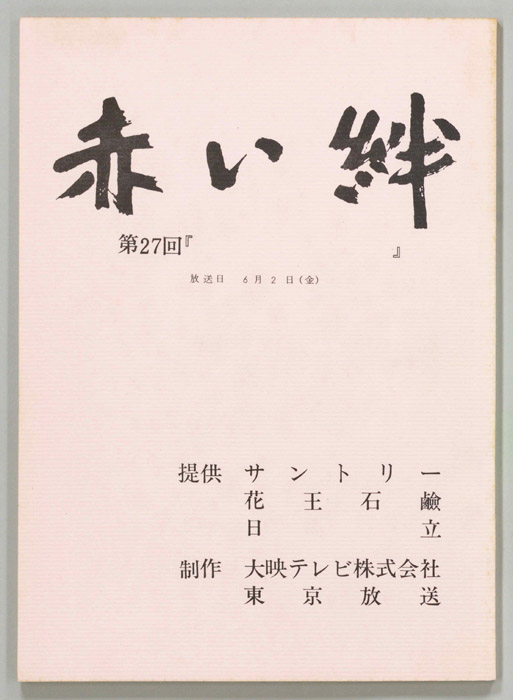 赤い絆
第27回『　　　　　　　』
放送日　6月2日(金)
提供　サントリー
花王石鹸
日立
制作　大映テレビ株式会社
東京放送